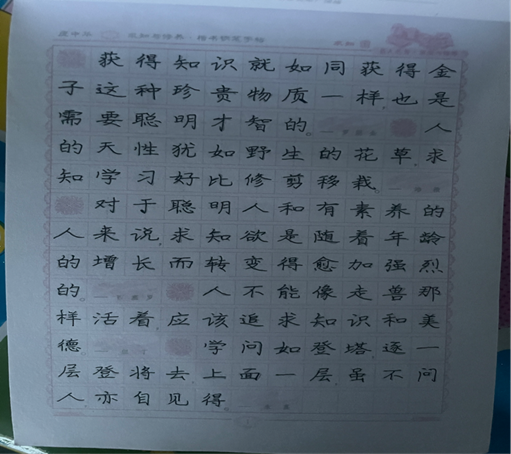 获得知识就如同获得金
子这种珍贵物质一样也是
需要聪明才智的 人
的天性犹如野生的花草求
知学习好比修剪移栽
对于聪明人和有素养的
人来说求知欲是随着年龄
的增长而转变得愈加强烈
的 人不能像走兽那
样活着应该追求知识和美
德 学问如登塔逐一
层登将去上面一层虽不问
人亦自见得